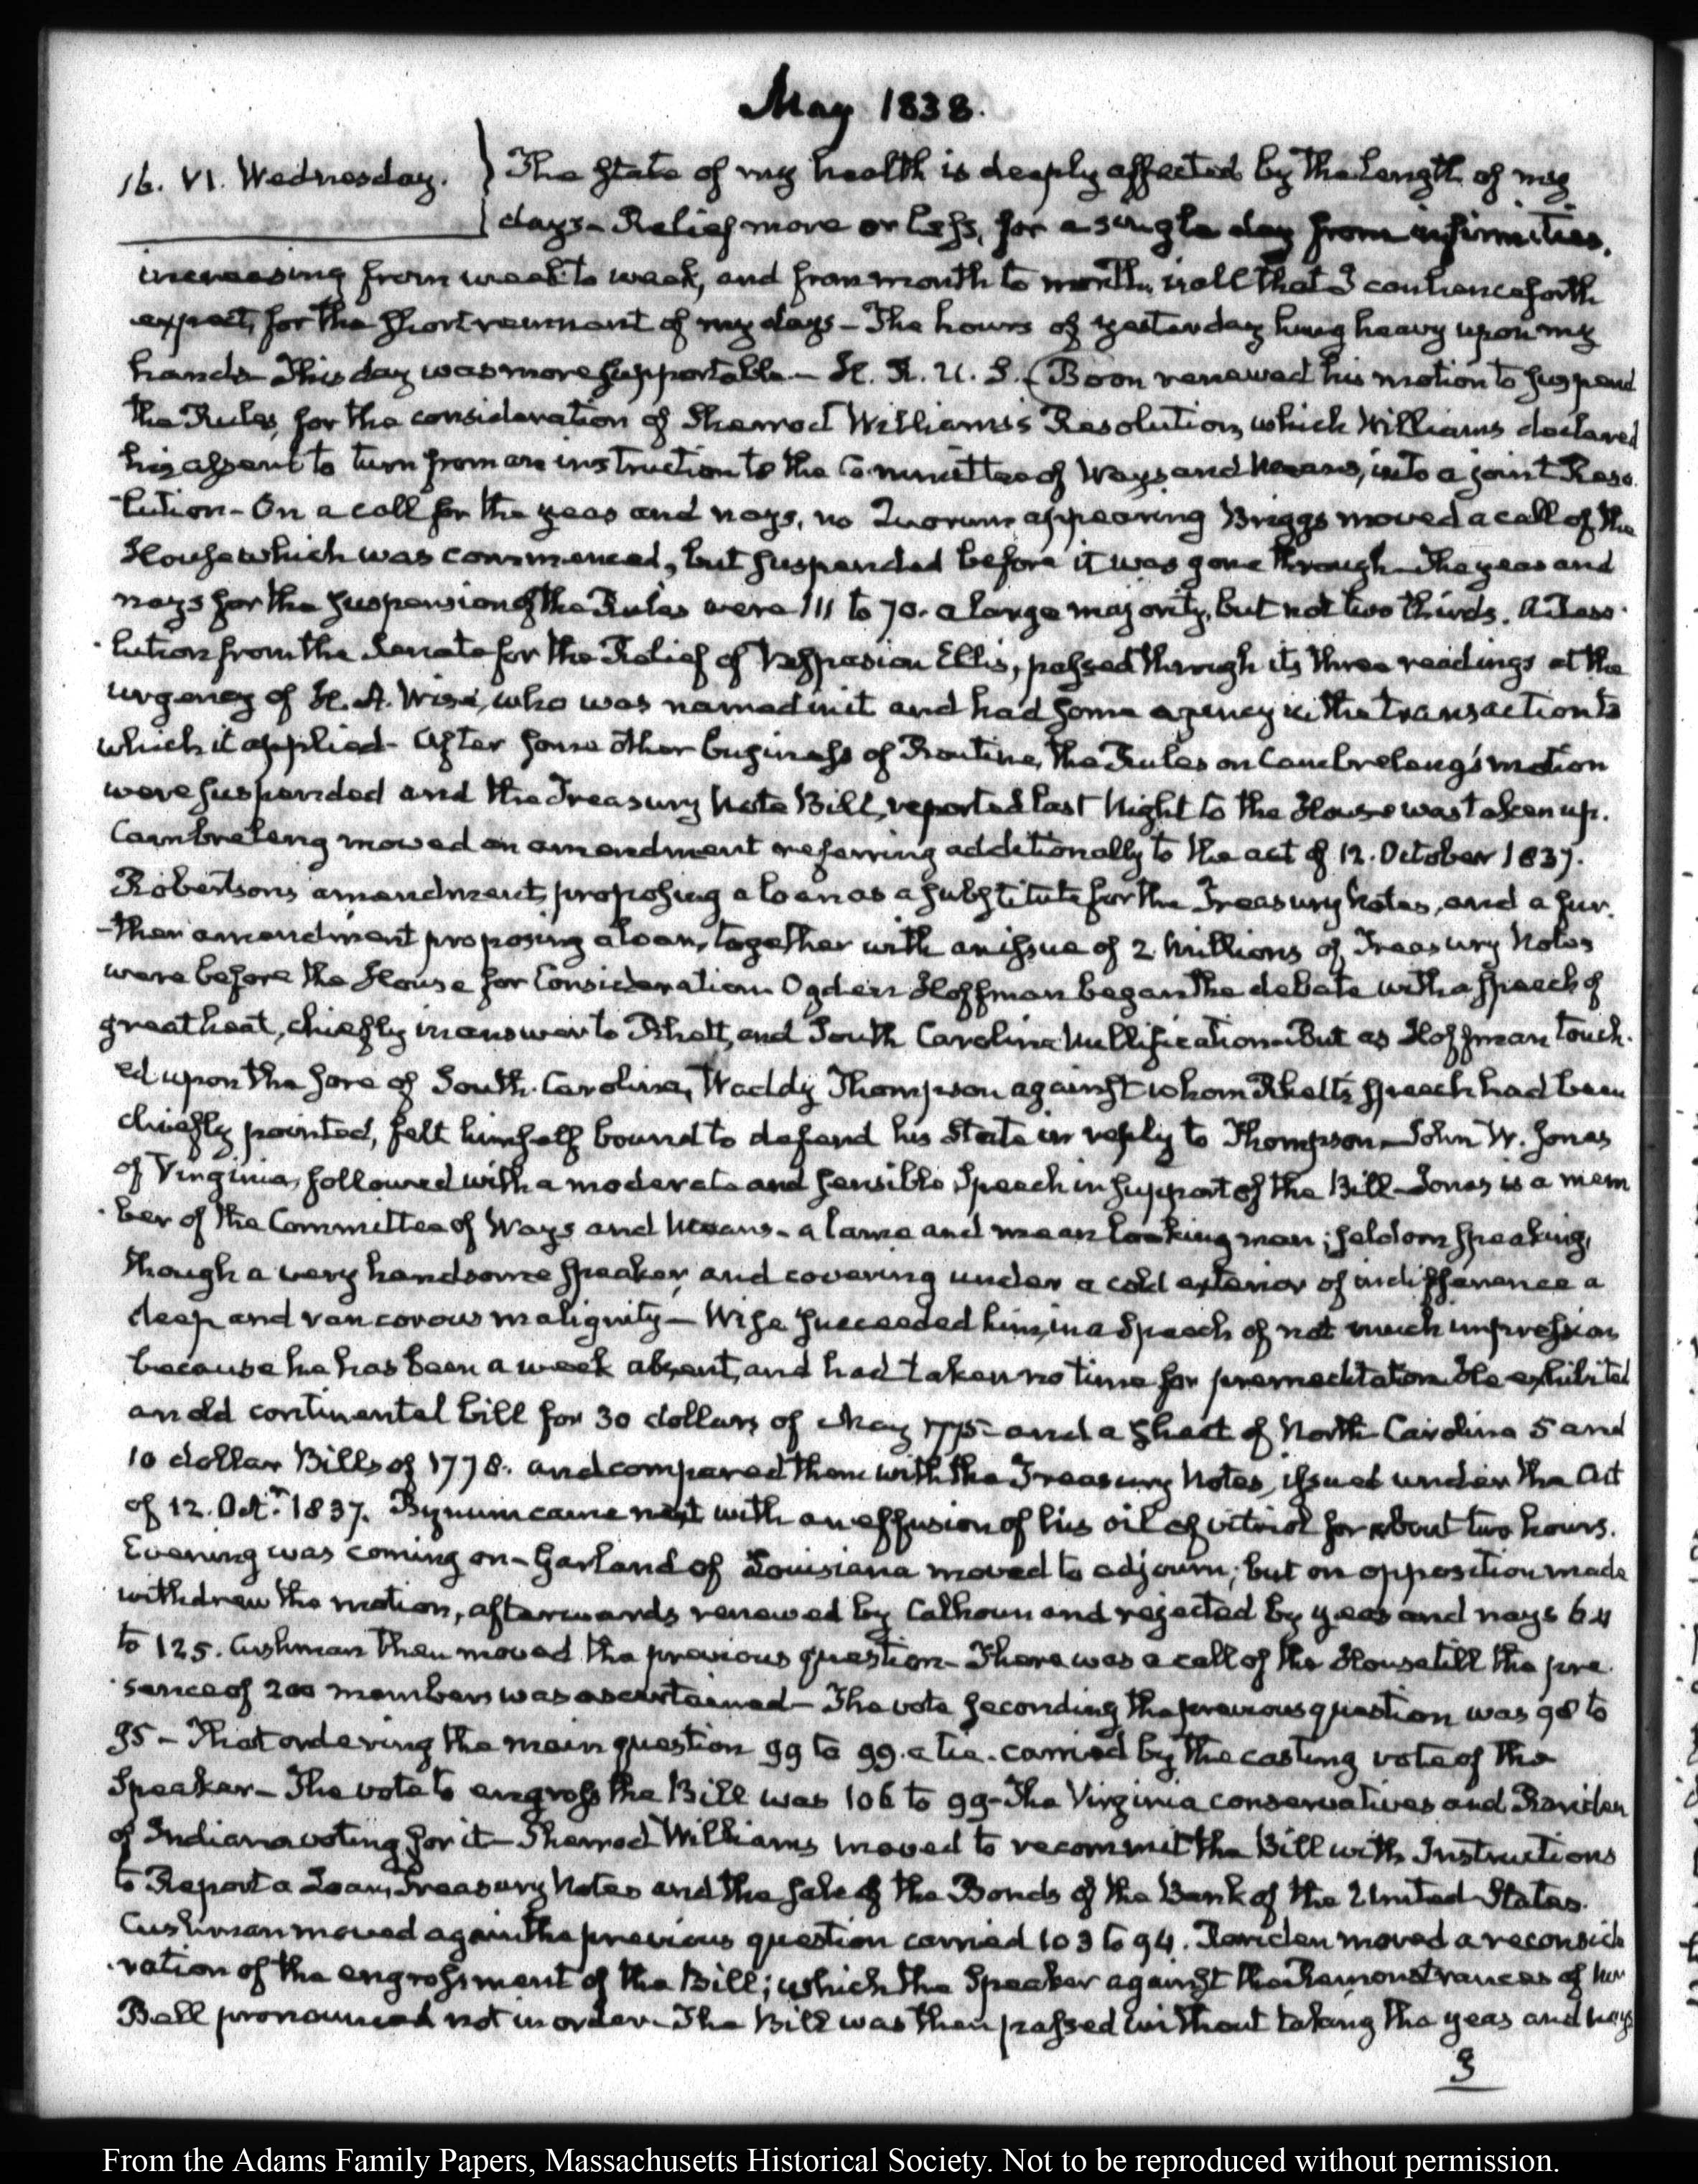 May 1838.
16. VI. Wednesday. } The state of my health is deeply affected by the length of my
days – Relief more or less, for a single day from infirmities,
increasing from week to week, and from month to month, is all that I can henceforth
expect, for the short remnant of my days – The hours of yesterday hung heavy upon my
hands – This day was more supportable – H. R. U. S. (Boon renewed his motion to suspend
the Rules, for the consideration of Sherrod Williams's Resolution, which Williams declared
his assent to turn from an instruction to the Committee of Ways and Means, into a joint Reso
-lution – On a call for the yeas and nays, no Quorum appearing Briggs moved a call of the
House which was commenced, but suspended before it was gone through – The yeas and
nays for the suspension of the Rules were 111 to 70. a large majority, but not two thirds. A Reso
-lution from the Senate for the Relief of Vespasian Ellis, passed through its three readings at the
urgency of H. A. Wise, who was named in it and had some agency in the transaction to
which it applied – After some other business of Routine, the Rules on Cambreleng's motion
were suspended and the Treasury Note Bill, reported last Night to the House was taken up.
Cambreleng moved an amendment referring additionally to the act of 12. October 1837.
Robertson's amendment, proposing a loan as a substitute for the Treasury Notes, and a fur
-ther amendment proposing a loan, together with an issue of 2 Millions of Treasury Notes
were before the House for Consideration. Ogden Hoffman began the debate with a speech of
great heat, chiefly in answer to Rhett, and South Carolina Nullification – But as Hoffman touch
ed upon the sore of South-Carolina, Waddy Thompson against whom Rhett's speech had been
chiefly pointed, felt himself bound to defend his State in reply to Thompson – John W. Jones
of Virginia, followed with a moderate and sensible Speech in support of the Bill – Jones is a mem
-ber of the Committee of Ways and Means – a lame and mean looking man; seldom speaking,
though a very handsome speaker, and covering under a cold exterior of indifference a
deep and rancorous malignity – Wise succeeded him, in a Speech of not much impression
because he has been a week absent, and had taken no time for premeditation. He exhibited
an old continental bill for 30 dollars of May 1775 – and a sheet of North-Carolina 5 and
10 dollar Bills of 1778. and compared them with the Treasury Notes, issued under the Act
of 12. Octr. 1837. Bynum came next with an effusion of his oil of vitriol for about two hours.
Evening was coming on – Garland of Louisiana moved to adjourn; but on opposition made
withdrew the motion, afterwards renewed by Calhoun and rejected by yeas and nays 64
to 125. Cushman then moved the previous question – There was a call of the House till the pre
-sence of 200 members was ascertained – The vote seconding the previous question was 98 to
95 – That ordering the main question 99 to 99. a tie. carried by the casting vote of the
Speaker – The vote to engross the Bill was 106 to 99 – The Virginia conservatives and Rariden
of Indiana voting for it – Sherrod Williams moved to recommit the Bill with Instructions
to Report a Loan, Treasury Notes and the sale of the Bonds of the Bank of the United States.
Cushman moved again the previous question carried 103 to 94. Rariden moved a reconside
-ration of the engrossment of the Bill; which the Speaker against the Remonstrances of
Bell pronounced not in order – The Bill was then passed without taking the yeas and nays
3
From the Adams Family Papers, Massachusetts Historical Society. Not to be reproduced without permission.